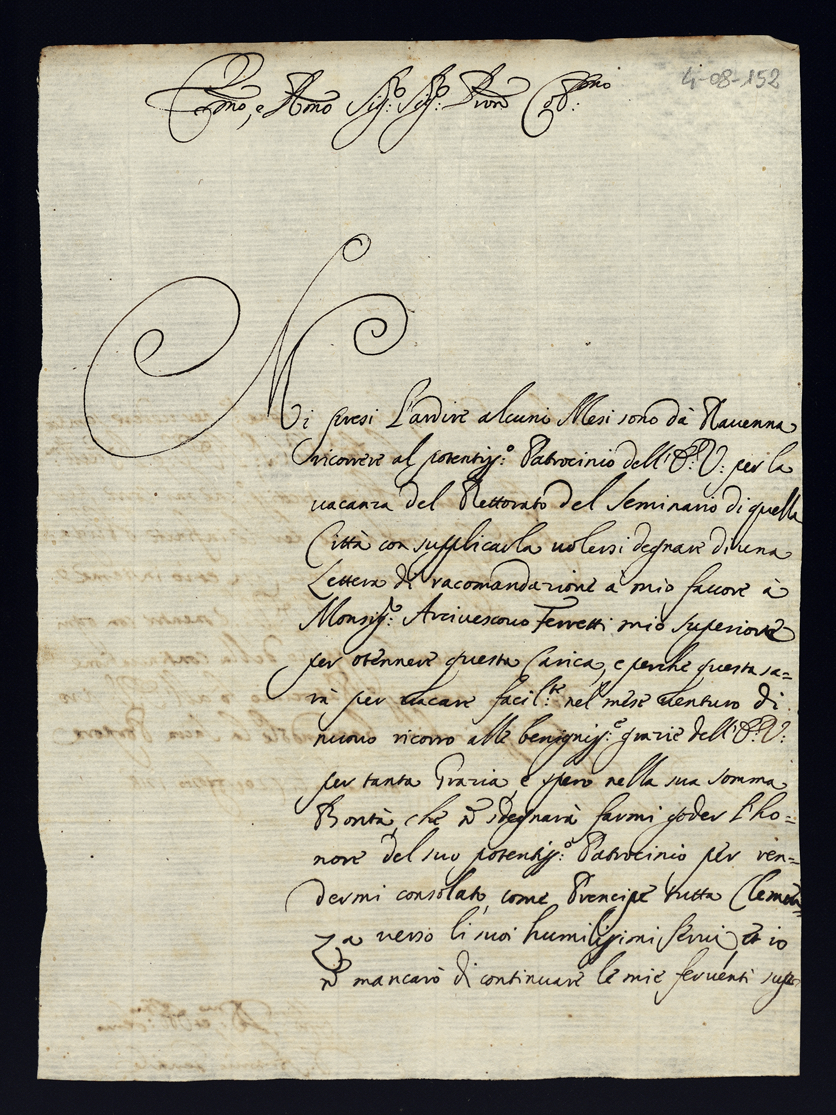 4-08-152
Emo, e Rmo Sig:r Sig:r Pron Col:mo
Mi presi L'ardire alcuni Mesi sono dà Ravenna
ricorrere al potentiss:o Patrocinio dell'E:V: per la
vacanza del Rettorato del Seminario di quella
Città con supplicarla volersi degnare di una
Lettera di racomandazione à mio favore à
Monsig:r Arcivescovo Ferretti mio superiore
per otennere questa Carica, e perche questa sa=
rà per vacare facil:te nel mese venturo di
nuovo ricorro alle benigniss:e grazie dell'E:V:
per tanta Grazia, e spero nella sua somma
Bontà, che ñ sdegnarà farmi goder l'ho=
nore del suo potentiss:o Patrocinio per ren=
dermi consolato, come Prencipe tutta Clemen=
za verso li suoi humilissimi servi, et io
ñ mancarò di continuare le mie ferventi sup